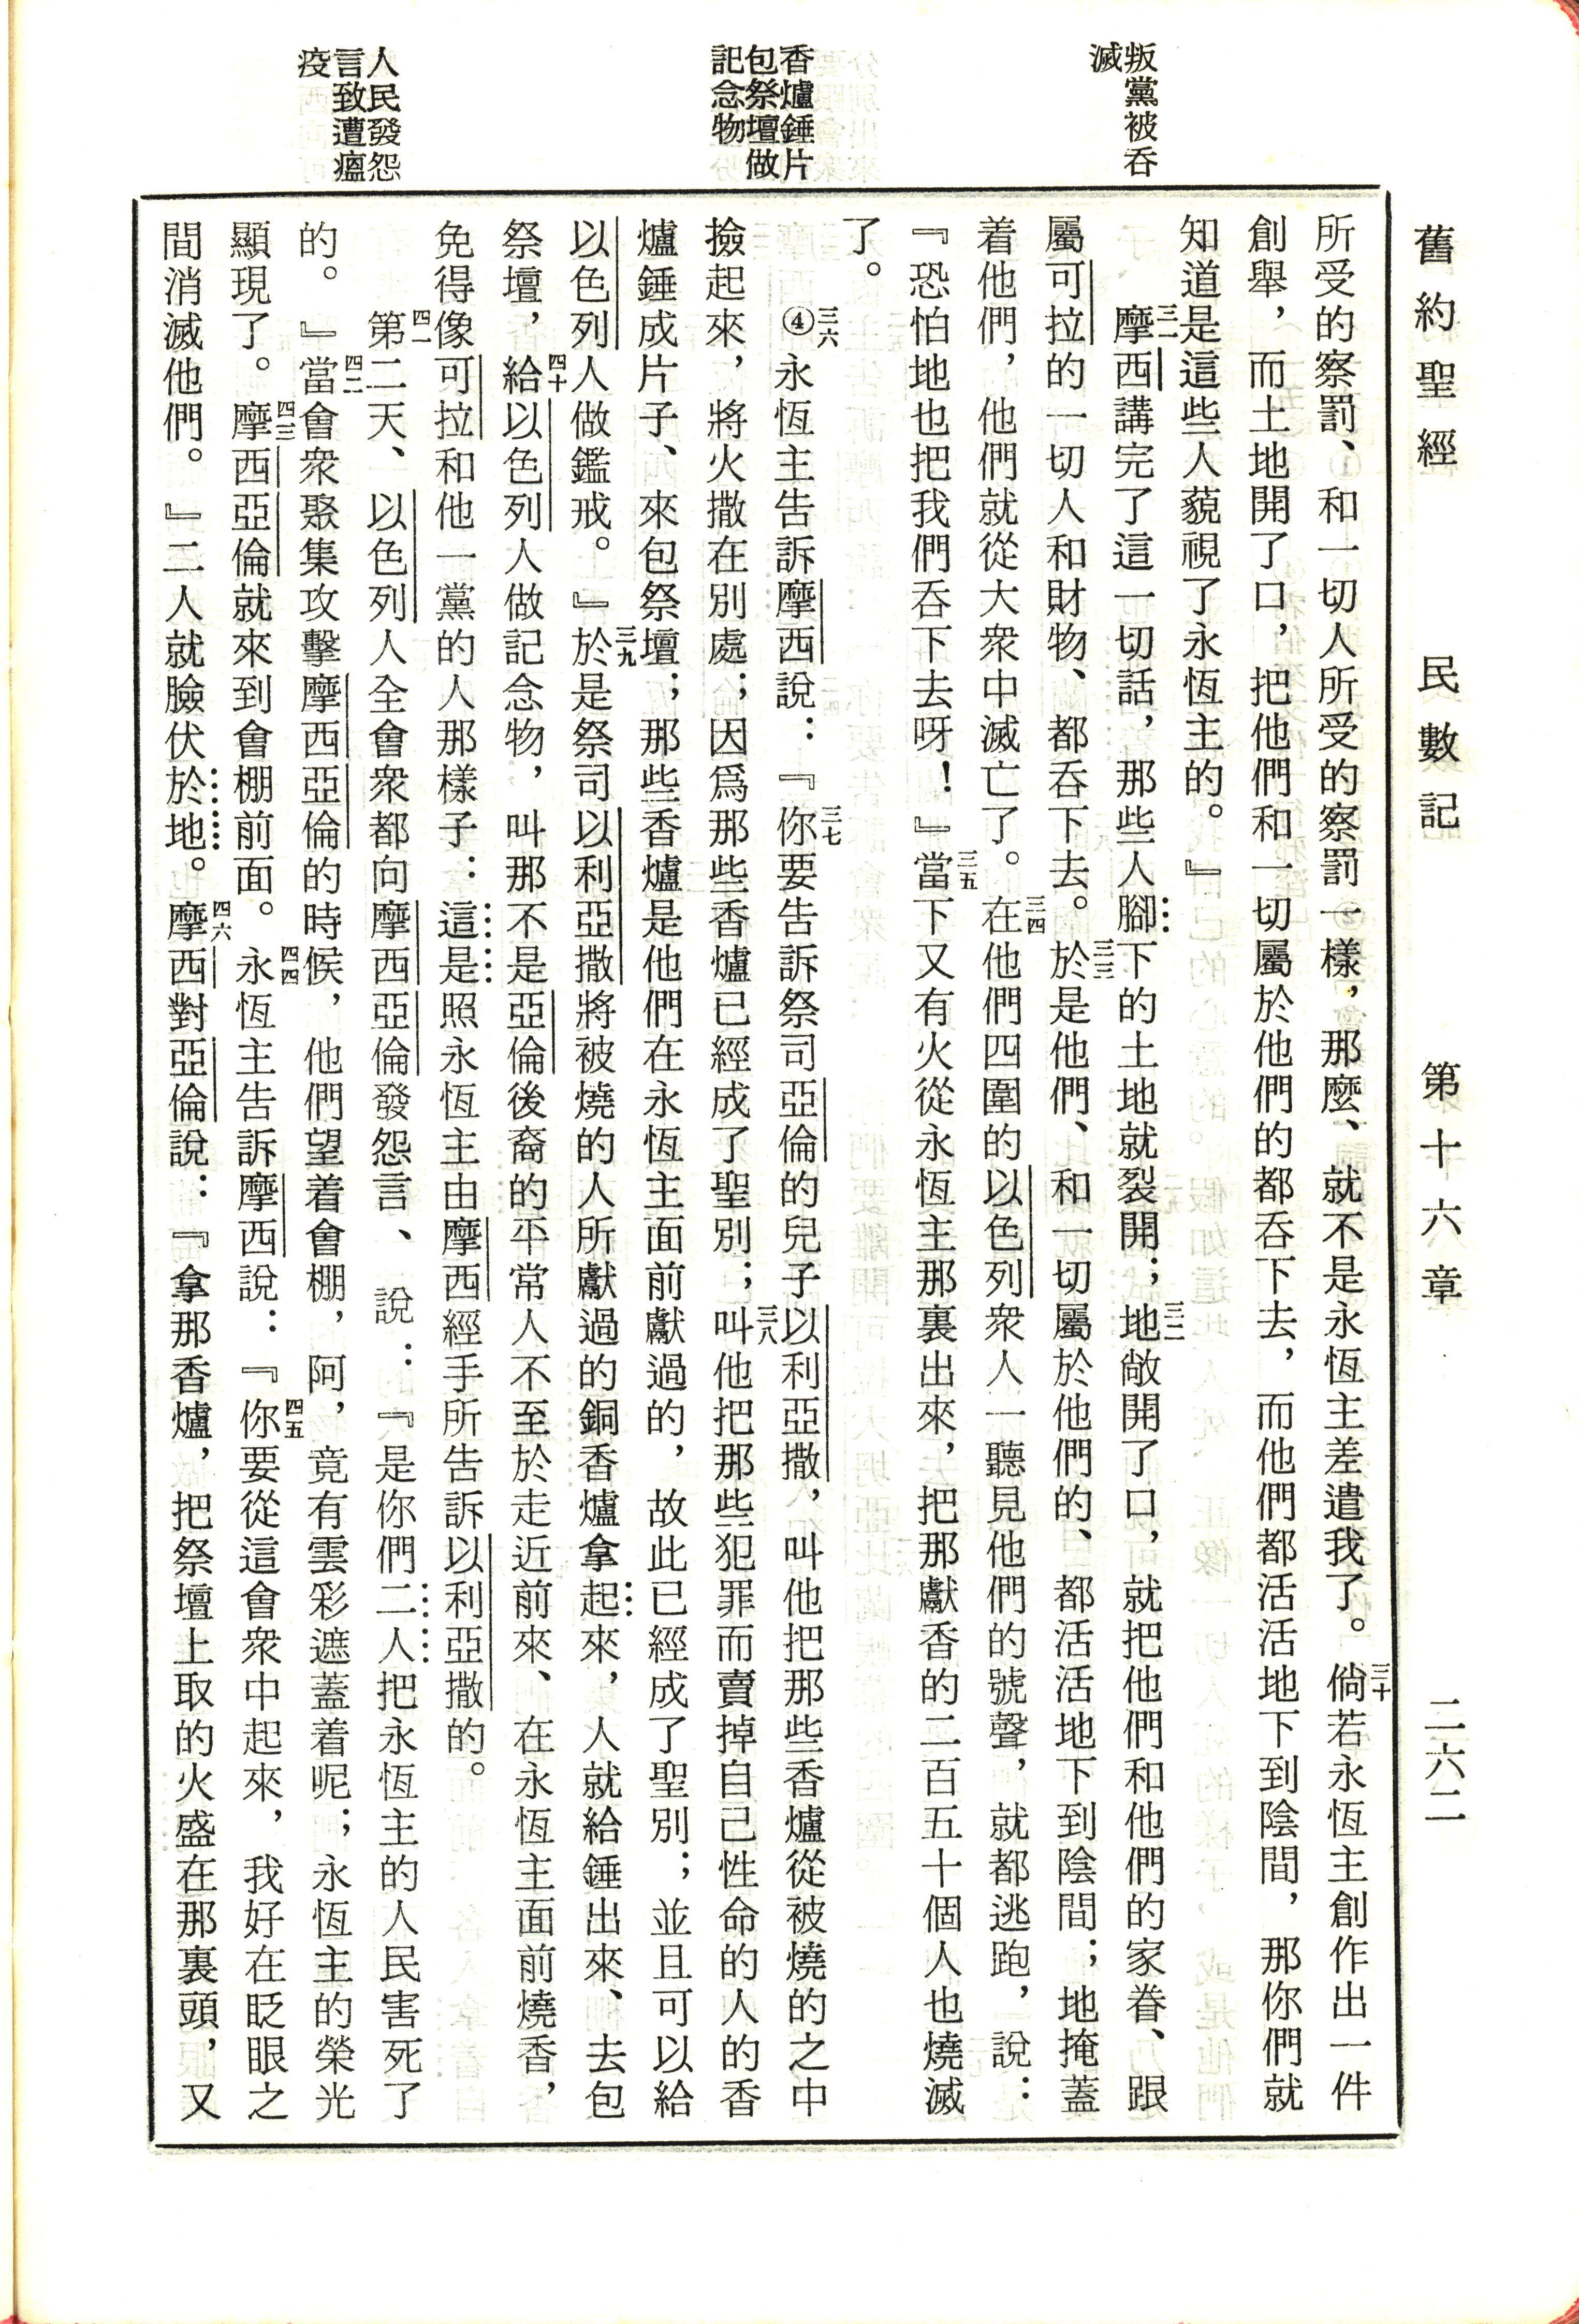 舊約聖經　民數記　第十六章　二六二
叛黨被吞
滅
香爐錘片
包祭壇做
記念物
人民發怨
言致遭瘟
疫
所受的察罰、和一切人所受的察罰一樣，那麼、就不是永恆主差遣我了。三十倘若永恆主創作出一件
創舉，而土地開了口，把他們和一切屬於他們的都吞下去，而他們都活活地下到陰間，那你們就
知道是這些人藐視了永恆主的。』
三一摩西講完了這一切話，那些人腳下的土地就裂開；三二地敞開了口，就把他們和他們的家眷、跟
屬可拉的一切人和財物、都吞下去。三三於是他們、和一切屬於他們的、都活活地下到陰間；地掩蓋
着他們，他們就從大衆中滅亡了。三四在他們四圍的以色列衆人一聽見他們的號聲，就都逃跑，說：
『恐怕地也把我們吞下去呀！』三五當下又有火從永恆主那裏出來，把那獻香的二百五十個人也燒滅
了。
三六④永恆主告訴摩西說：三七『你要告訴祭司亞倫的兒子以利亞撒，叫他把那些香爐從被燒的之中
撿起來，將火撒在別處；因爲那些香爐已經成了聖別；三八叫他把那些犯罪而賣掉自己性命的人的香
爐錘成片子、來包祭壇；那些香爐是他們在永恆主面前獻過的，故此已經成了聖別；並且可以給
以色列人做鑑戒。』三九於是祭司以利亞撒將被燒的人所獻過的銅香爐拿起來，人就給錘出來、去包
祭壇，四十給以色列人做記念物，叫那不是亞倫後裔的平常人不至於走近前來、在永恆主面前燒香，
免得像可拉和他一黨的人那樣子：這是照永恆主由摩西經手所告訴以利亞撒的。
四一第二天、以色列人全會衆都向摩西亞倫發怨言、說：『是你們二人把永恆主的人民害死了
的。』四二當會衆聚集攻擊摩西亞倫的時候，他們望着會棚，阿，竟有雲彩遮蓋着呢；永恆主的榮光
顯現了。四三摩西亞倫就來到會棚前面。四四永恆主告訴摩西說：四五『你要從這會衆中起來，我好在眨眼之
間消滅他們。』二人就臉伏於地。四六摩西對亞倫說：『拿那香爐，把祭壇上取的火盛在那裏頭，又